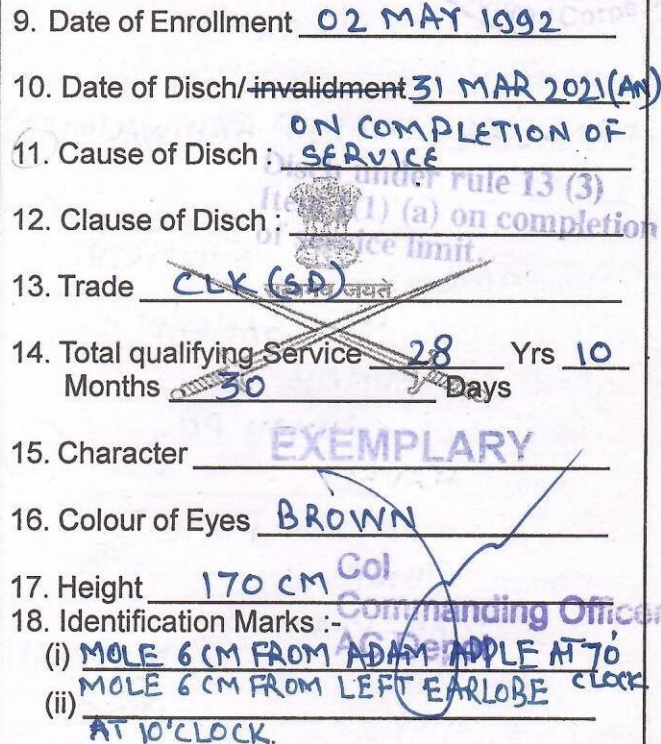 9. Date of Enrollment 02 MAY 1992
10. Date of Disch/invalidment 31 MAR 2021(AN)
ON COMPLETION OF
11. Cause of Disch : SERVICE
Disch under rule 13 (3)
(1) (a) on completion
12. Clause of Disch :
of service limit.
13. Trade CLK (SD)
सत्यमेव जयते
14. Total qualifying Service 28 Yrs 10
Months 30 Days
15. Character EXEMPLARY
16. Colour of Eyes BROWN
17. Height 170 CM
Col
Commanding Officer
18. Identification Marks :-
(i) MOLE 6 CM FROM ADAM APPLE AT 7O'
CLOCK
(ii) MOLE 6 CM FROM LEFT EARLOBE
AT 10'CLOCK.